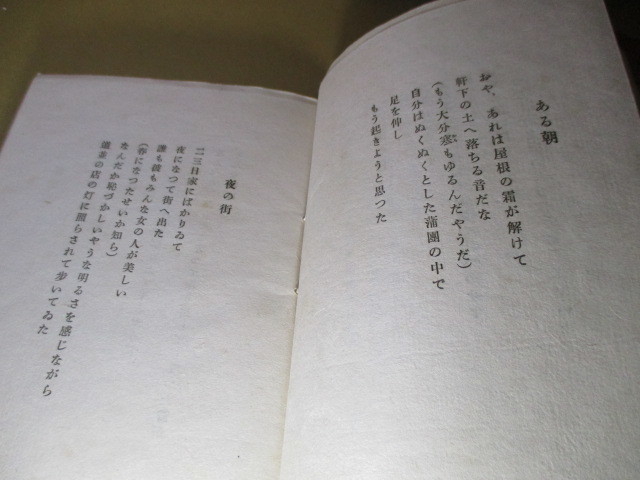 ある朝
おや、あれは屋根の霜が解けて
軒下の土へ落ちる音だな
(もう大分寒さもゆるんだやうだ)
自分はぬくぬくとした蒲團の中で
足を伸し
もう起きようと思つた
夜の街
二三日家にばかりゐて
夜になつて街へ出た
誰も彼もみんな女の人が美しい
(春になつたせいか知ら)
なんだか恥づかしいやうな明るさを感じながら
の店の灯に照らされて歩いてゐた